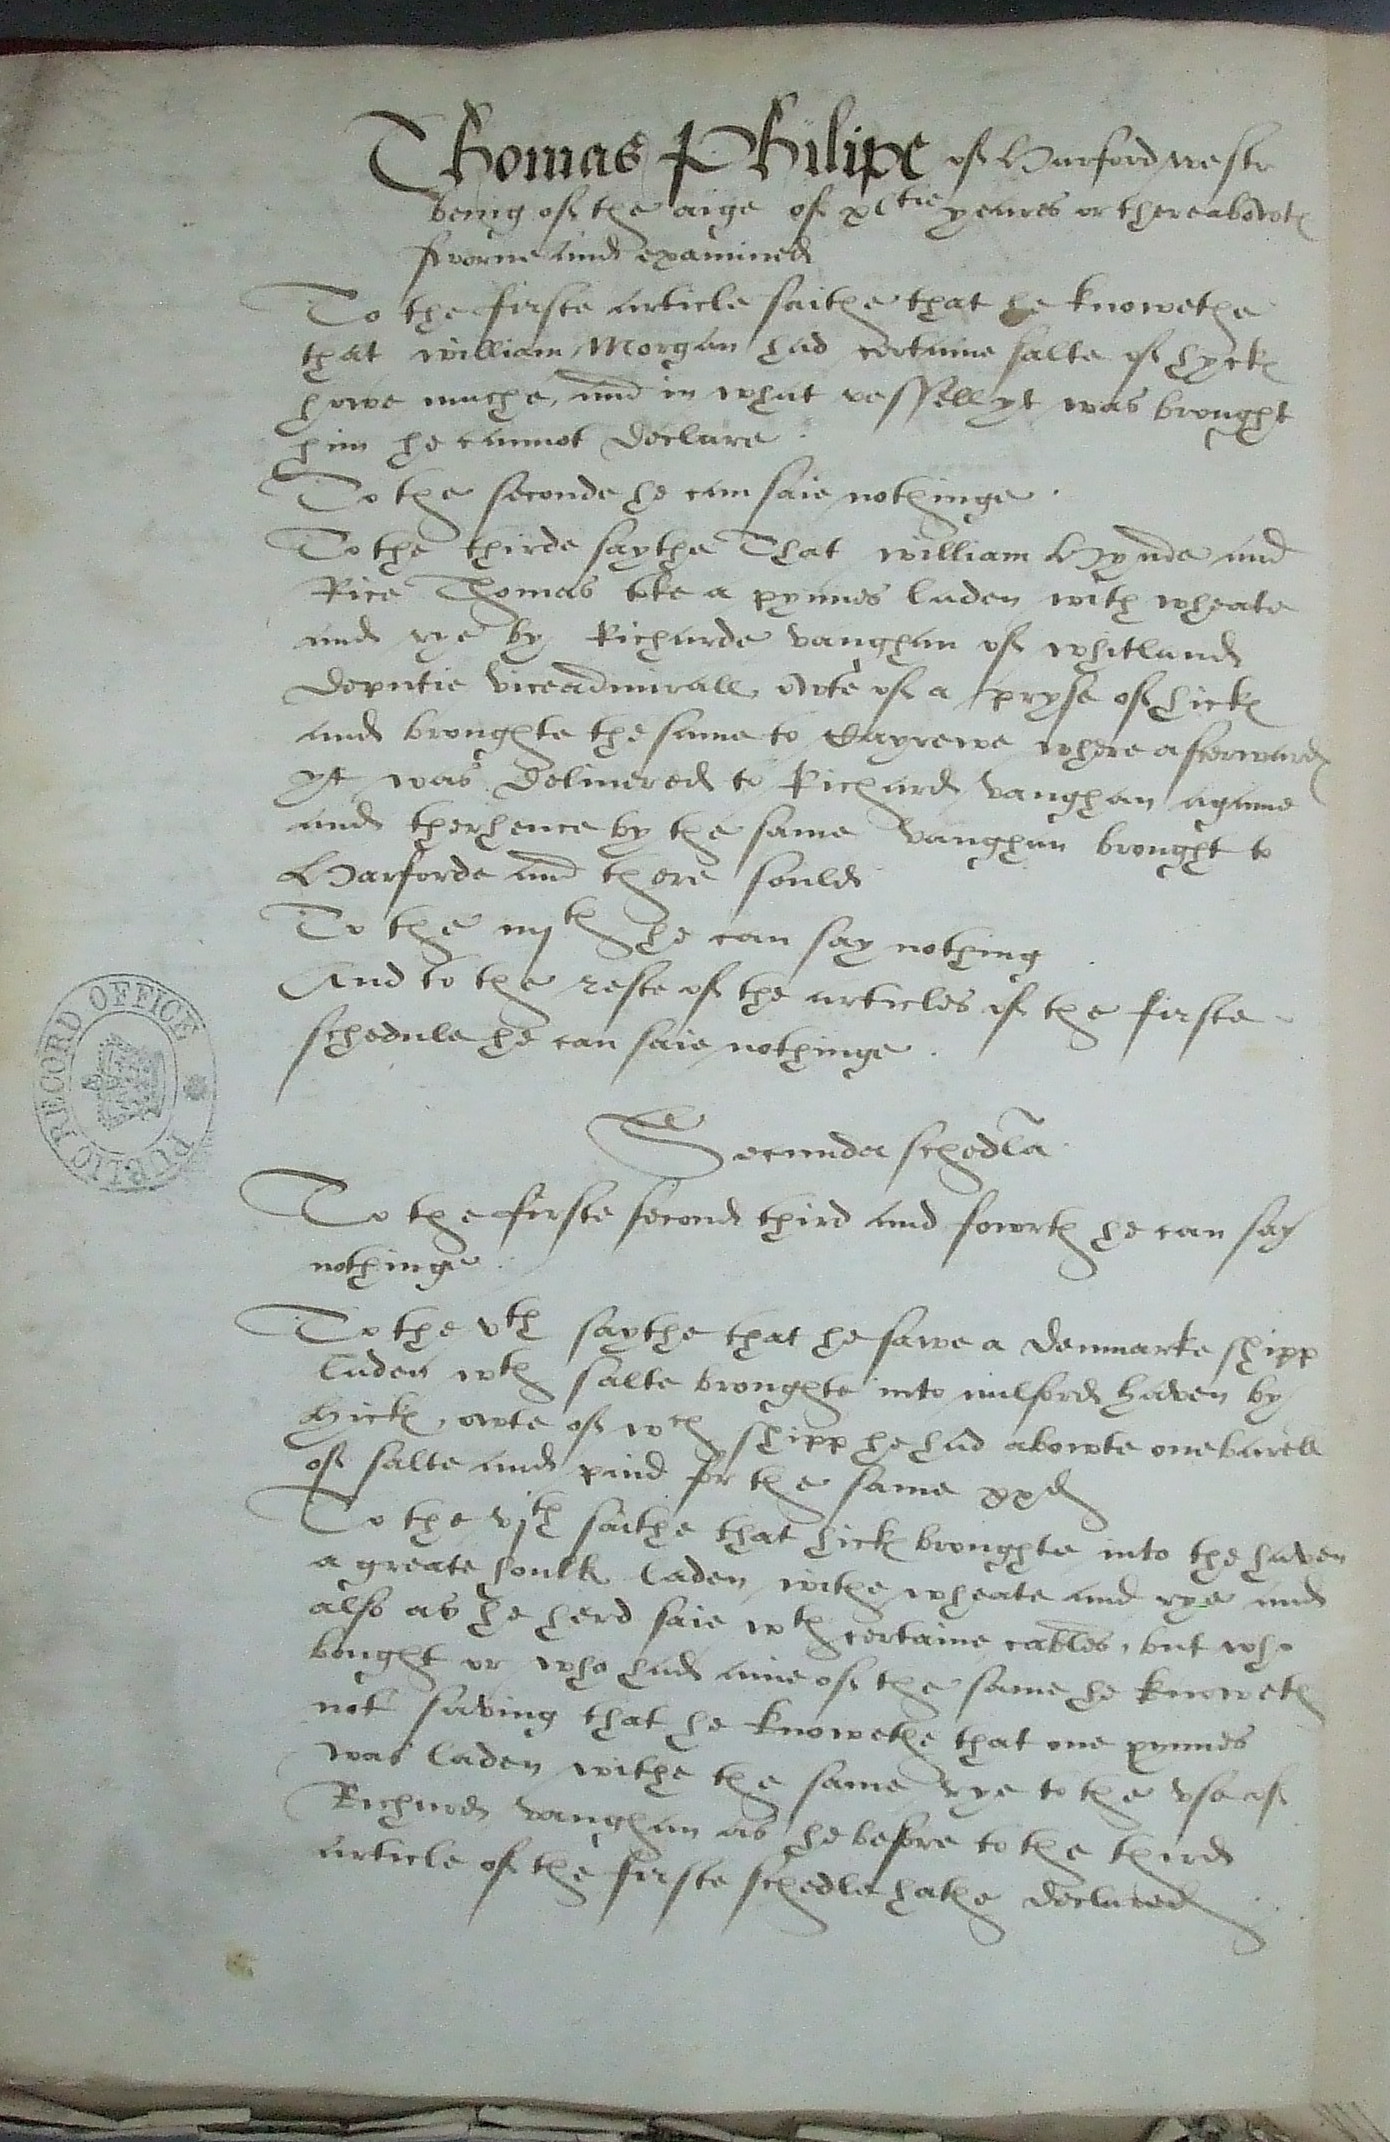 Thomas Philipe of Harford west
being of the aige of xltie yeares or thereabowts
sworne and examined
To the firste article saithe that he knowethe
that william Morgan had certaine salte of hyck
howe muche, and in what vessell yt was brought
him he cannot declare.
To the seconde he can saie nothinge.
To the thirde saythe That william Hynde and
Rice Thomas toke a pynnes laden with wheate
and rye by Richarde vaughan of whitland
deputie viceadmirall, owte of a pryse of hick
and broughte the same to where afterward
yt was delivered to Richard vaughan againe
and therhence by the same vaughan brought to
Harforde and there sould
To the iiijth he can say nothing
And to the reste of the articles of the firste
schedule he can saie nothinge.
Secunda schedla
To the firste second third and fowrth he can say
nothinge.
To the vth saythe that he sawe a denmarke shipp
laden wth salte broughte into milford haven by
Hick, owte of wch shipp he had abowte one barell
of salte and paid for the same xxd
To the vjth saithe that hick broughte into the haven
a greate houlk laden withe wheate and rye and
also as he herd saie wth certaine cables, but who
bought or who had anie of the same he knoweth
not saving that he knowethe that one pynnes
was laden withe the same rye to the vse of
Richard vaughan as he before to the third
article of the firste schedle hathe declared
PUBLIC RECORD OFFICE